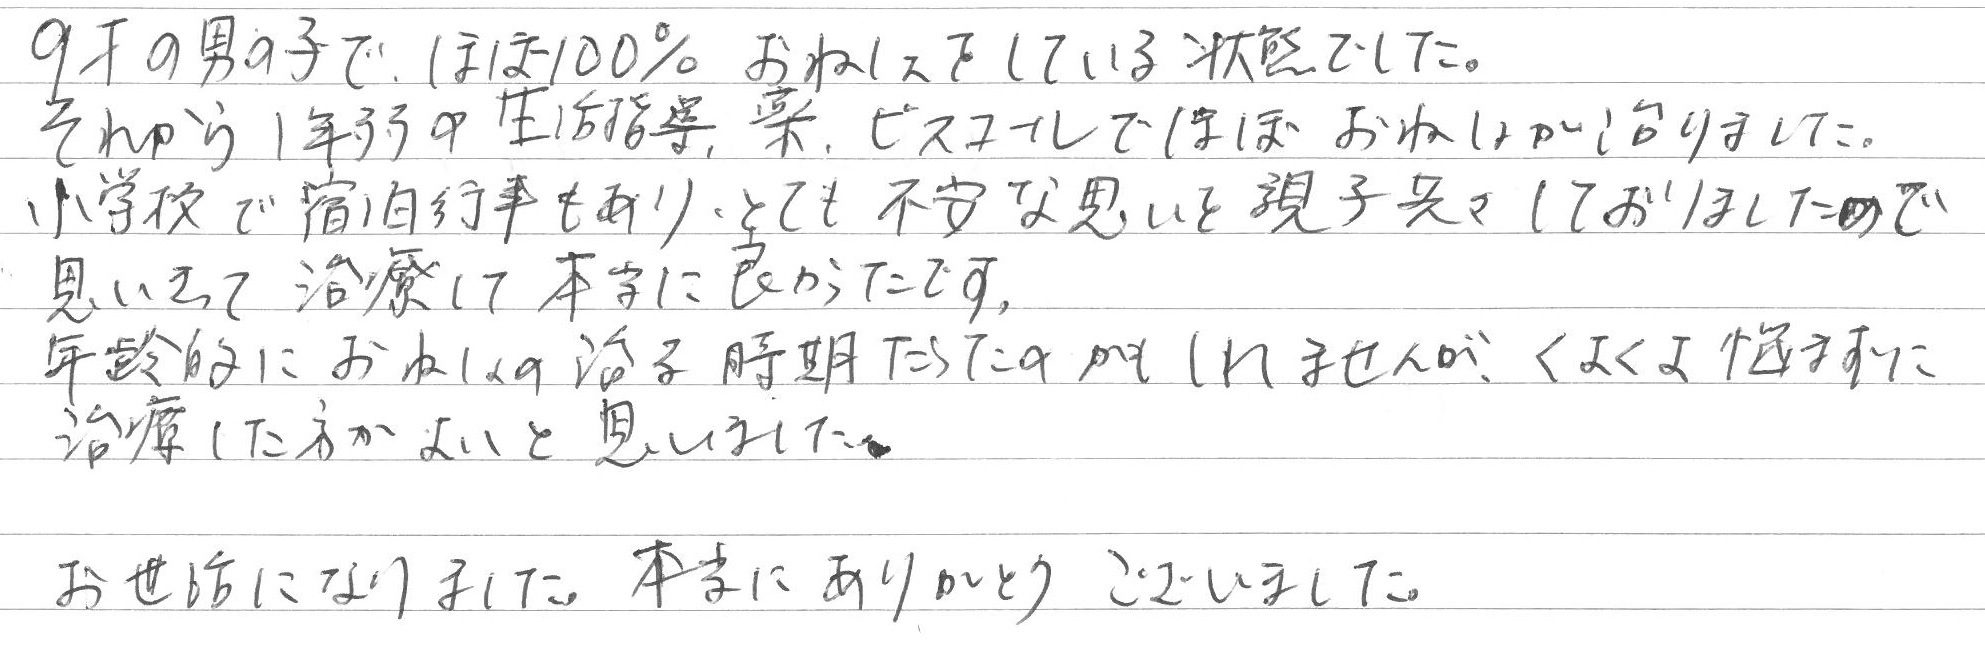 9才の男の子で、ほぼ100% おねしょをしている状態でした。
それから1年弱の生活指導、薬、ピスコールでほぼ おねしょが治りました。
小学校で宿泊行事もあり、とても不安な思いを親子共々しておりましたので
思いきって治療して本当に良かったです。
年齢的におねしょの治る時期だったのかもしれませんが、くよくよ悩まずに
治療した方がよいと思いました。
お世話になりました。本当にありがとうございました。